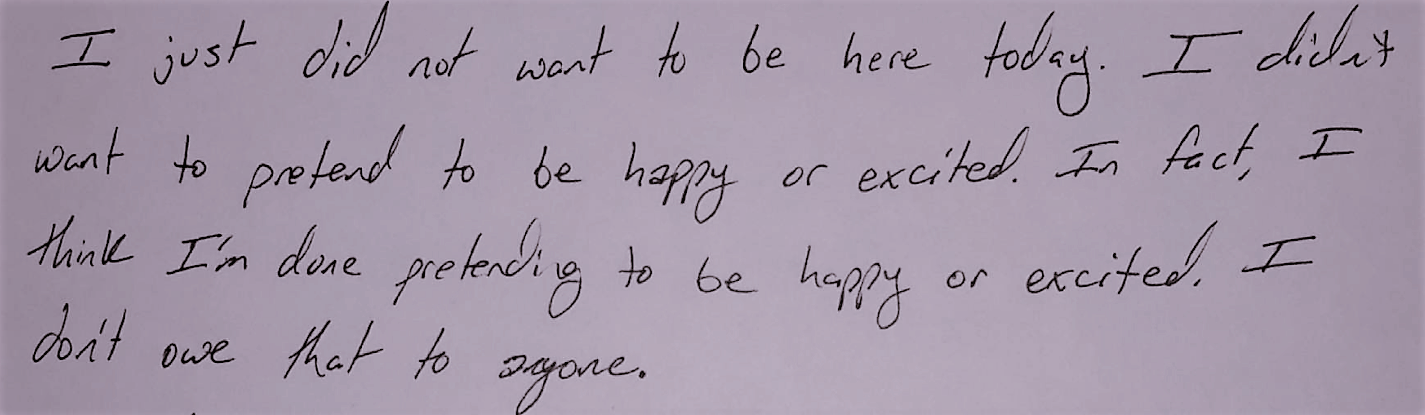 I just did not want to be here today. I didn't
want to pretend to be happy or excited. In fact, I
think I'm done pretending to be happy or excited. I
don't owe that to anyone.